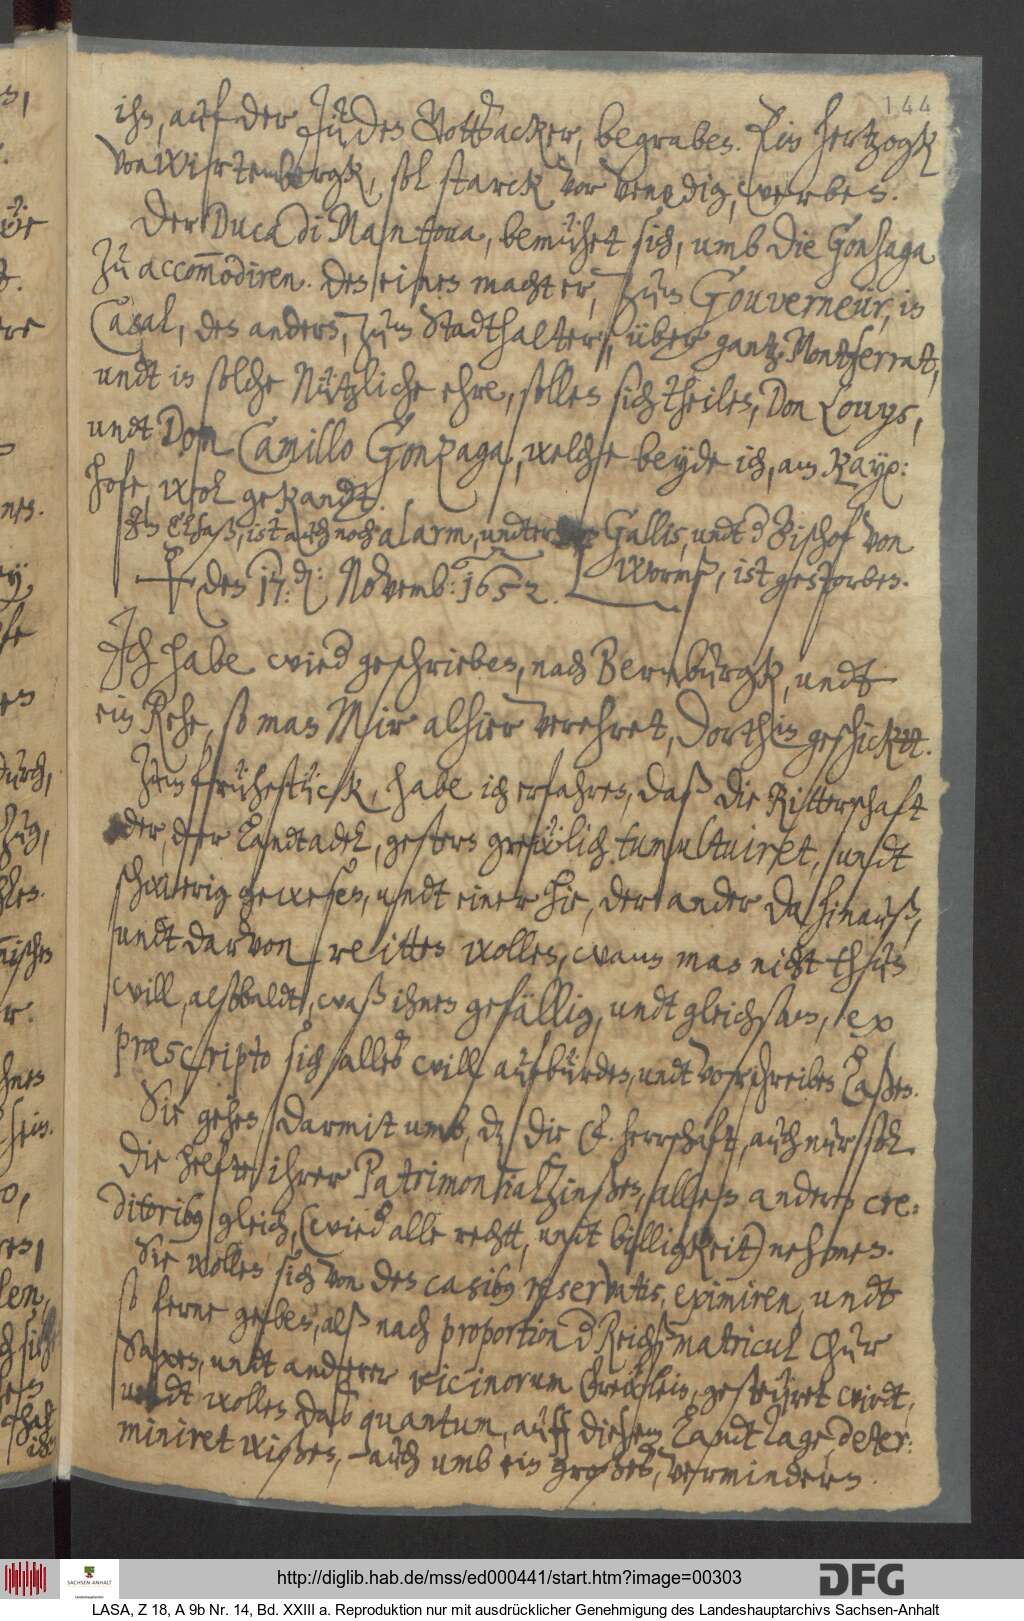 144
ihn, auf der Jüden Gottsacker, begraben. Ein Hertzogk
von Wirtembergk, sol starck vor Venedig, werben.
Der Duca di Mantoua, bemühet sich, umb die Gonsaga
zu accommòdiren. Den einen macht er, zum Gouverneur, in
Casal, den andern, zum Stadthalter, über gantz Montferrat,
undt in solche Nützliche ehre, sollen sich theilen, Don Louys,
undt Dom Camillo Gonzaga, welche beyde ich, am Kay:
hofe, wol gekandt.
Im Elsaß, ist auch noch alarm, undter Gallis, undt d Bischof von
Worms, ist gestorben.
den 17: Novemb: 1652.
Ich habe wied geschrieben, nach Bernburgk, undt
ein Rehe, so man Mir alhier verehret, dorthin geschicktt.
Zum frühestück, habe ich erfahren, daß die Ritterschaft
oder, der Landtadel, gestern grewlich tumultuiret, undt
schwierig gewesen, undt einer hie, der ander da hinauß,
undt darvon reitten wollen, wann man nicht thun
will, alsobaldt, waß ihnen gefällig, undt gleichsam, ex
præscripto sich alles will aufbürden, undt vorschreiben Laßen.
Sie gehen darmit umb, dz die E. herrschaft, auch nur sol
die helfte ihrer PatrimonialZinßen, allen andern cre:
ditoribus gleich, (wied alle rechtt, undt billigkeit) nehmen.
Sie wollen sich von den casibus reservatis, eximiren, undt
so ferne geben, alß nach proportion d Reichßmatricul Chur
Saxen, undt anderer vicinorum Greißlein, gesteüret wirdt,
undt wollen das quantum, auff diesem Landt Tage, deter:
miniret wißen, auch umb ein großes, vermindern.
http://diglib.hab.de/mss/ed000441/start.htm?image=00303
SACHSEN-ANHALT
Landeshauptarchiv
DFG
LASA, Z 18, A 9b Nr. 14, Bd. XXIII a. Reproduktion nur mit ausdrücklicher Genehmigung des Landeshauptarchivs Sachsen-Anhalt